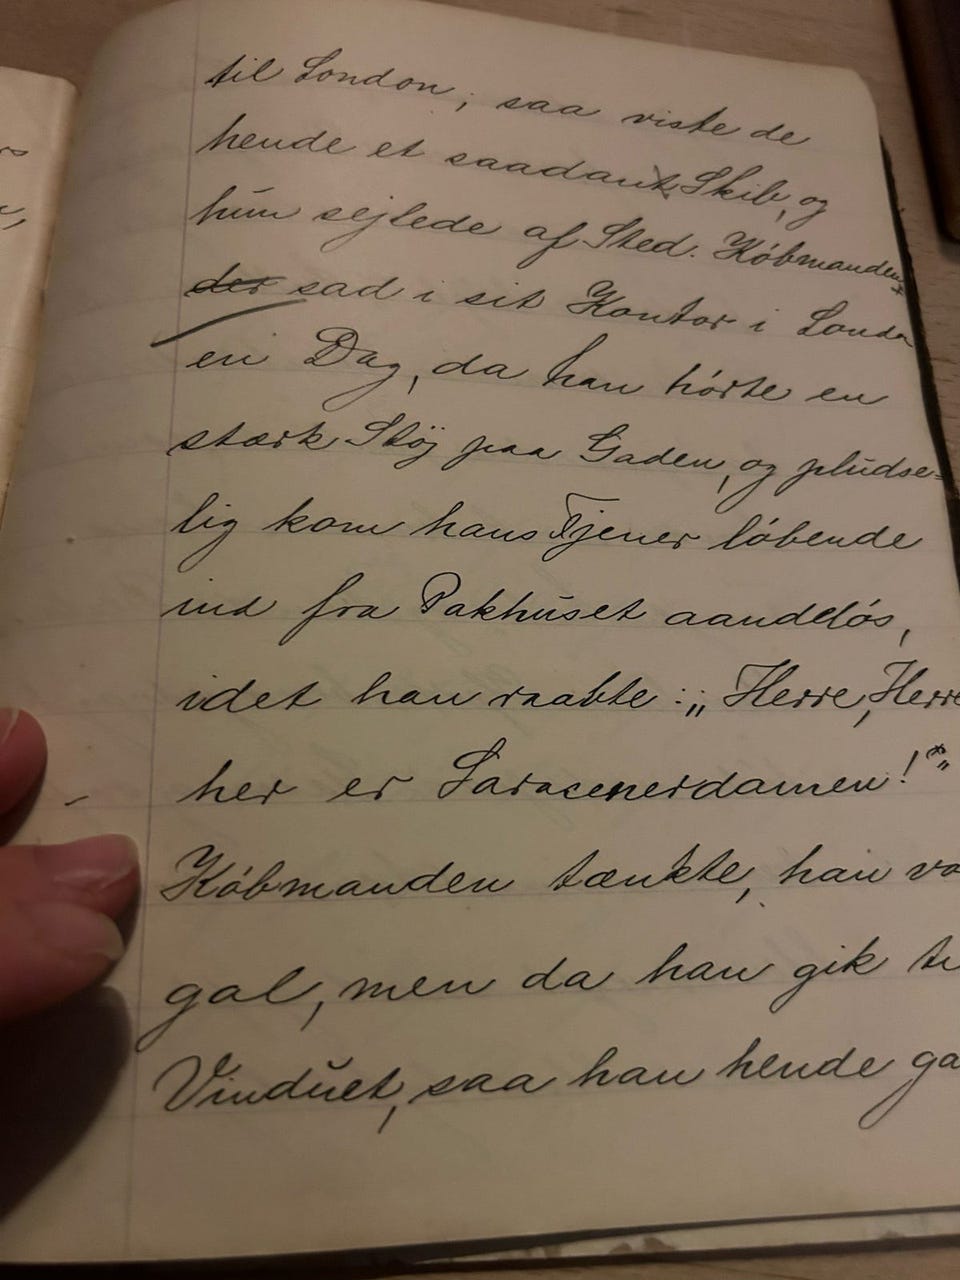 til London; saa viste de
hende et saadant Skib, og
hun sejlede af Sted. Købmanden
der sad i sit Kontor i London
en Dag, da han hørte en
stærk Støj paa Gaden, og pludse-
lig kom hans Tjener løbende
ind fra Pakhuset aandeløs,
idet han raabte: „Herre, Herre
her er Saracenerdamen!"
Købmanden tænkte, han va
gal, men da han gik ti
Vinduet, saa han hende ga